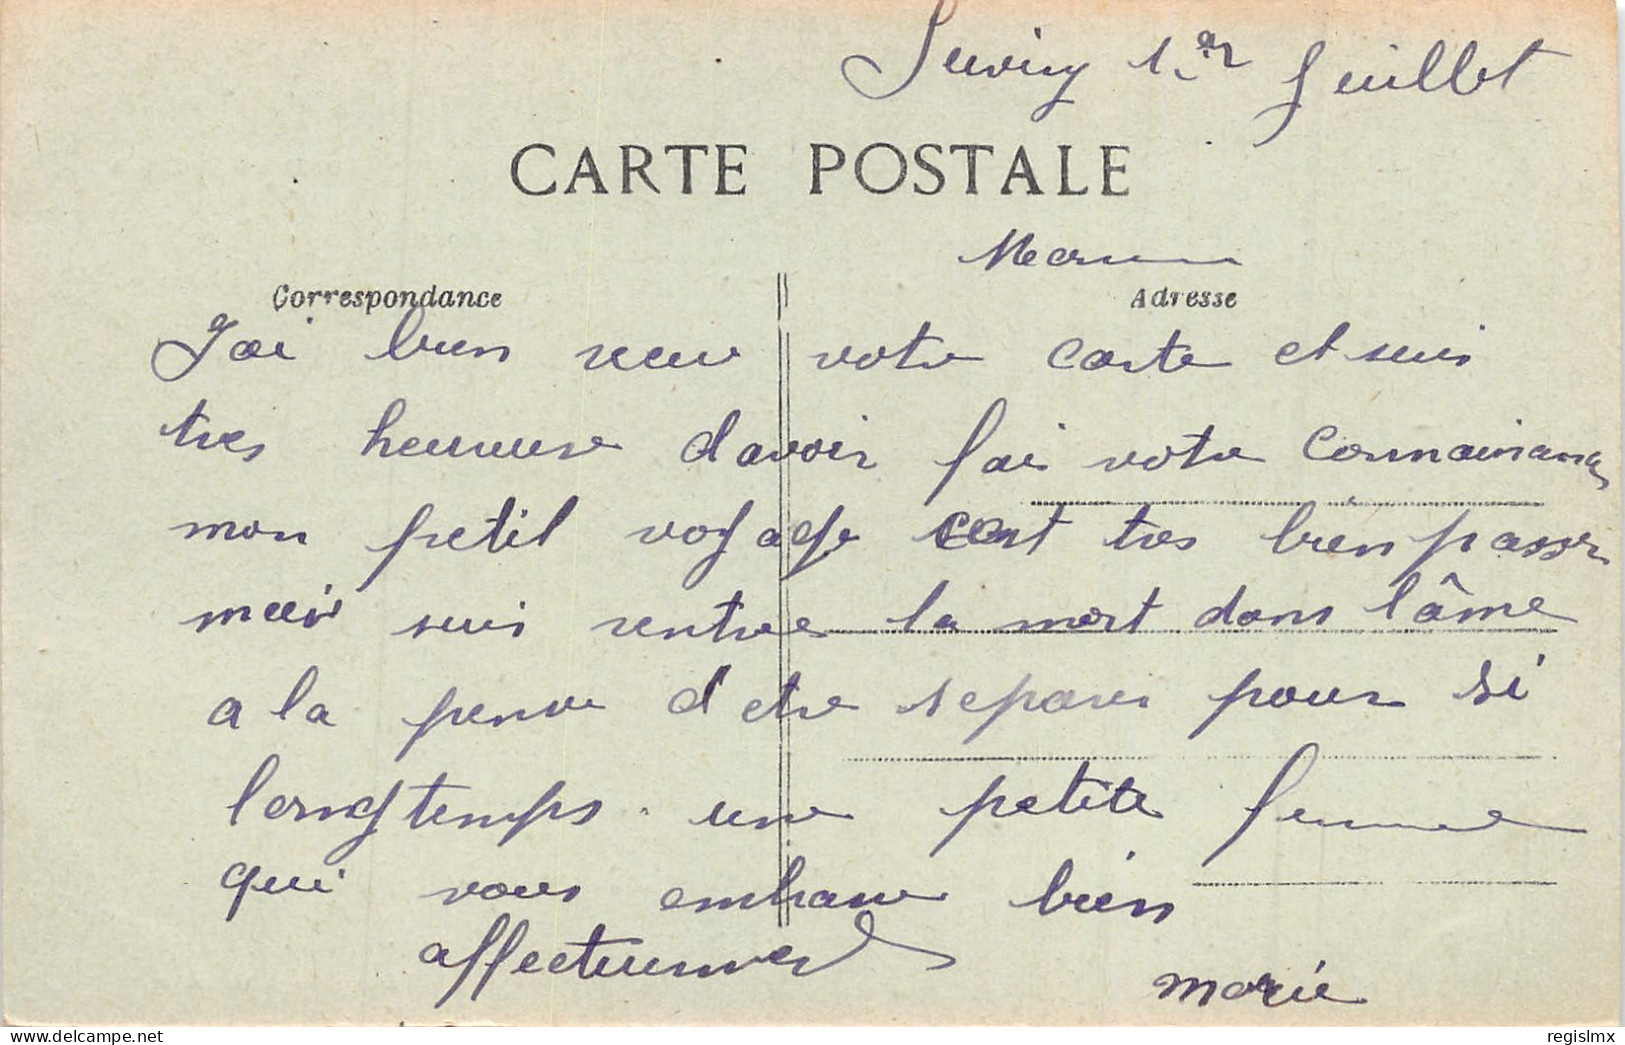 Juvisy 1er Juillet
CARTE POSTALE
Correspondance
Adresse
J'ai bien recu votre carte et suis
tres heureuse davoir fai votre connaissance
mon petit voyage cest tres bien passer
mais suis rentree la mort dans l'âme
a la pensee d'etre separer pour si
longtemps. une petite femme
qui vous embrasse bien
affectueusement
Marie
delcampe.net
regislmx